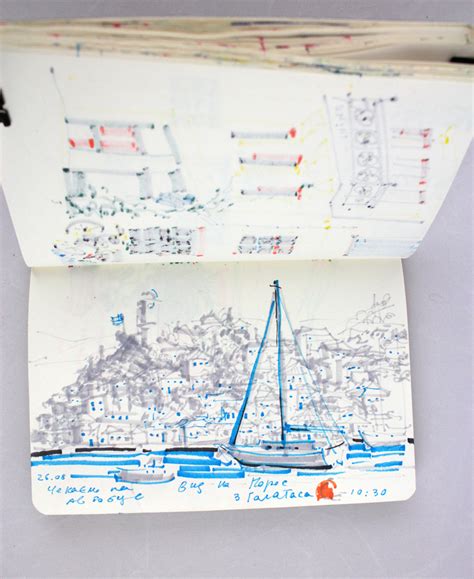 26.08
Чекаємо на
автобус
Вид на Порос
з Галатаса - 10:30